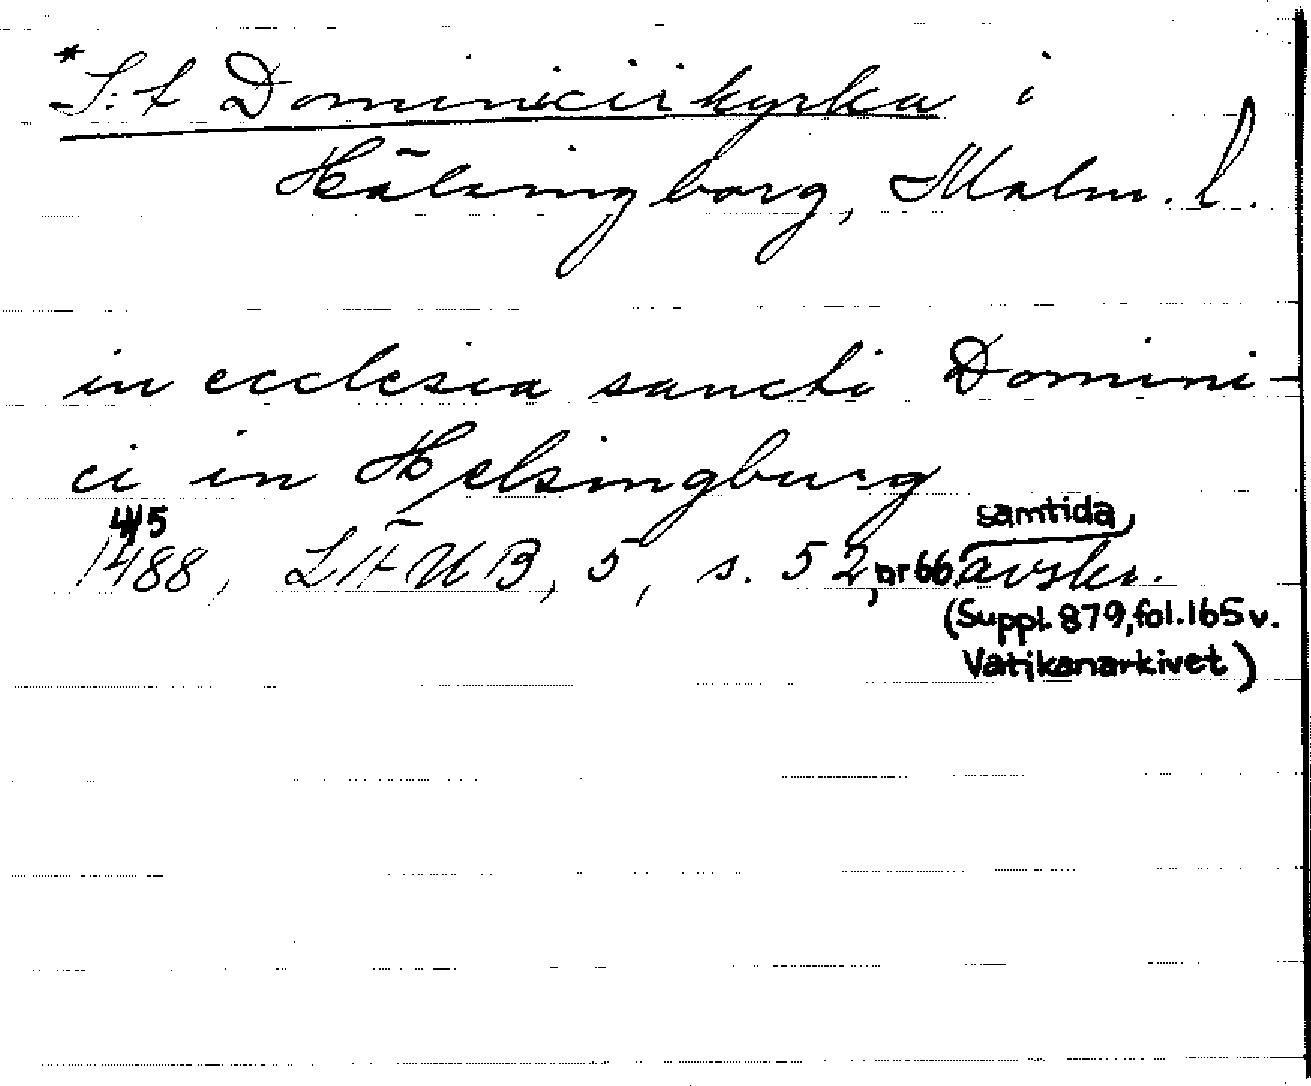 *S:t Dominici kyrka i
Hälsingborg, Malm. l.
in ecclesia sancti Domini-
ci in Helsingburg
4/5 samtida
1488, LÄUB, 5, s. 52, nr 66 avskr.
(Suppl. 879, fol. 165 v.
Vatikanarkivet)